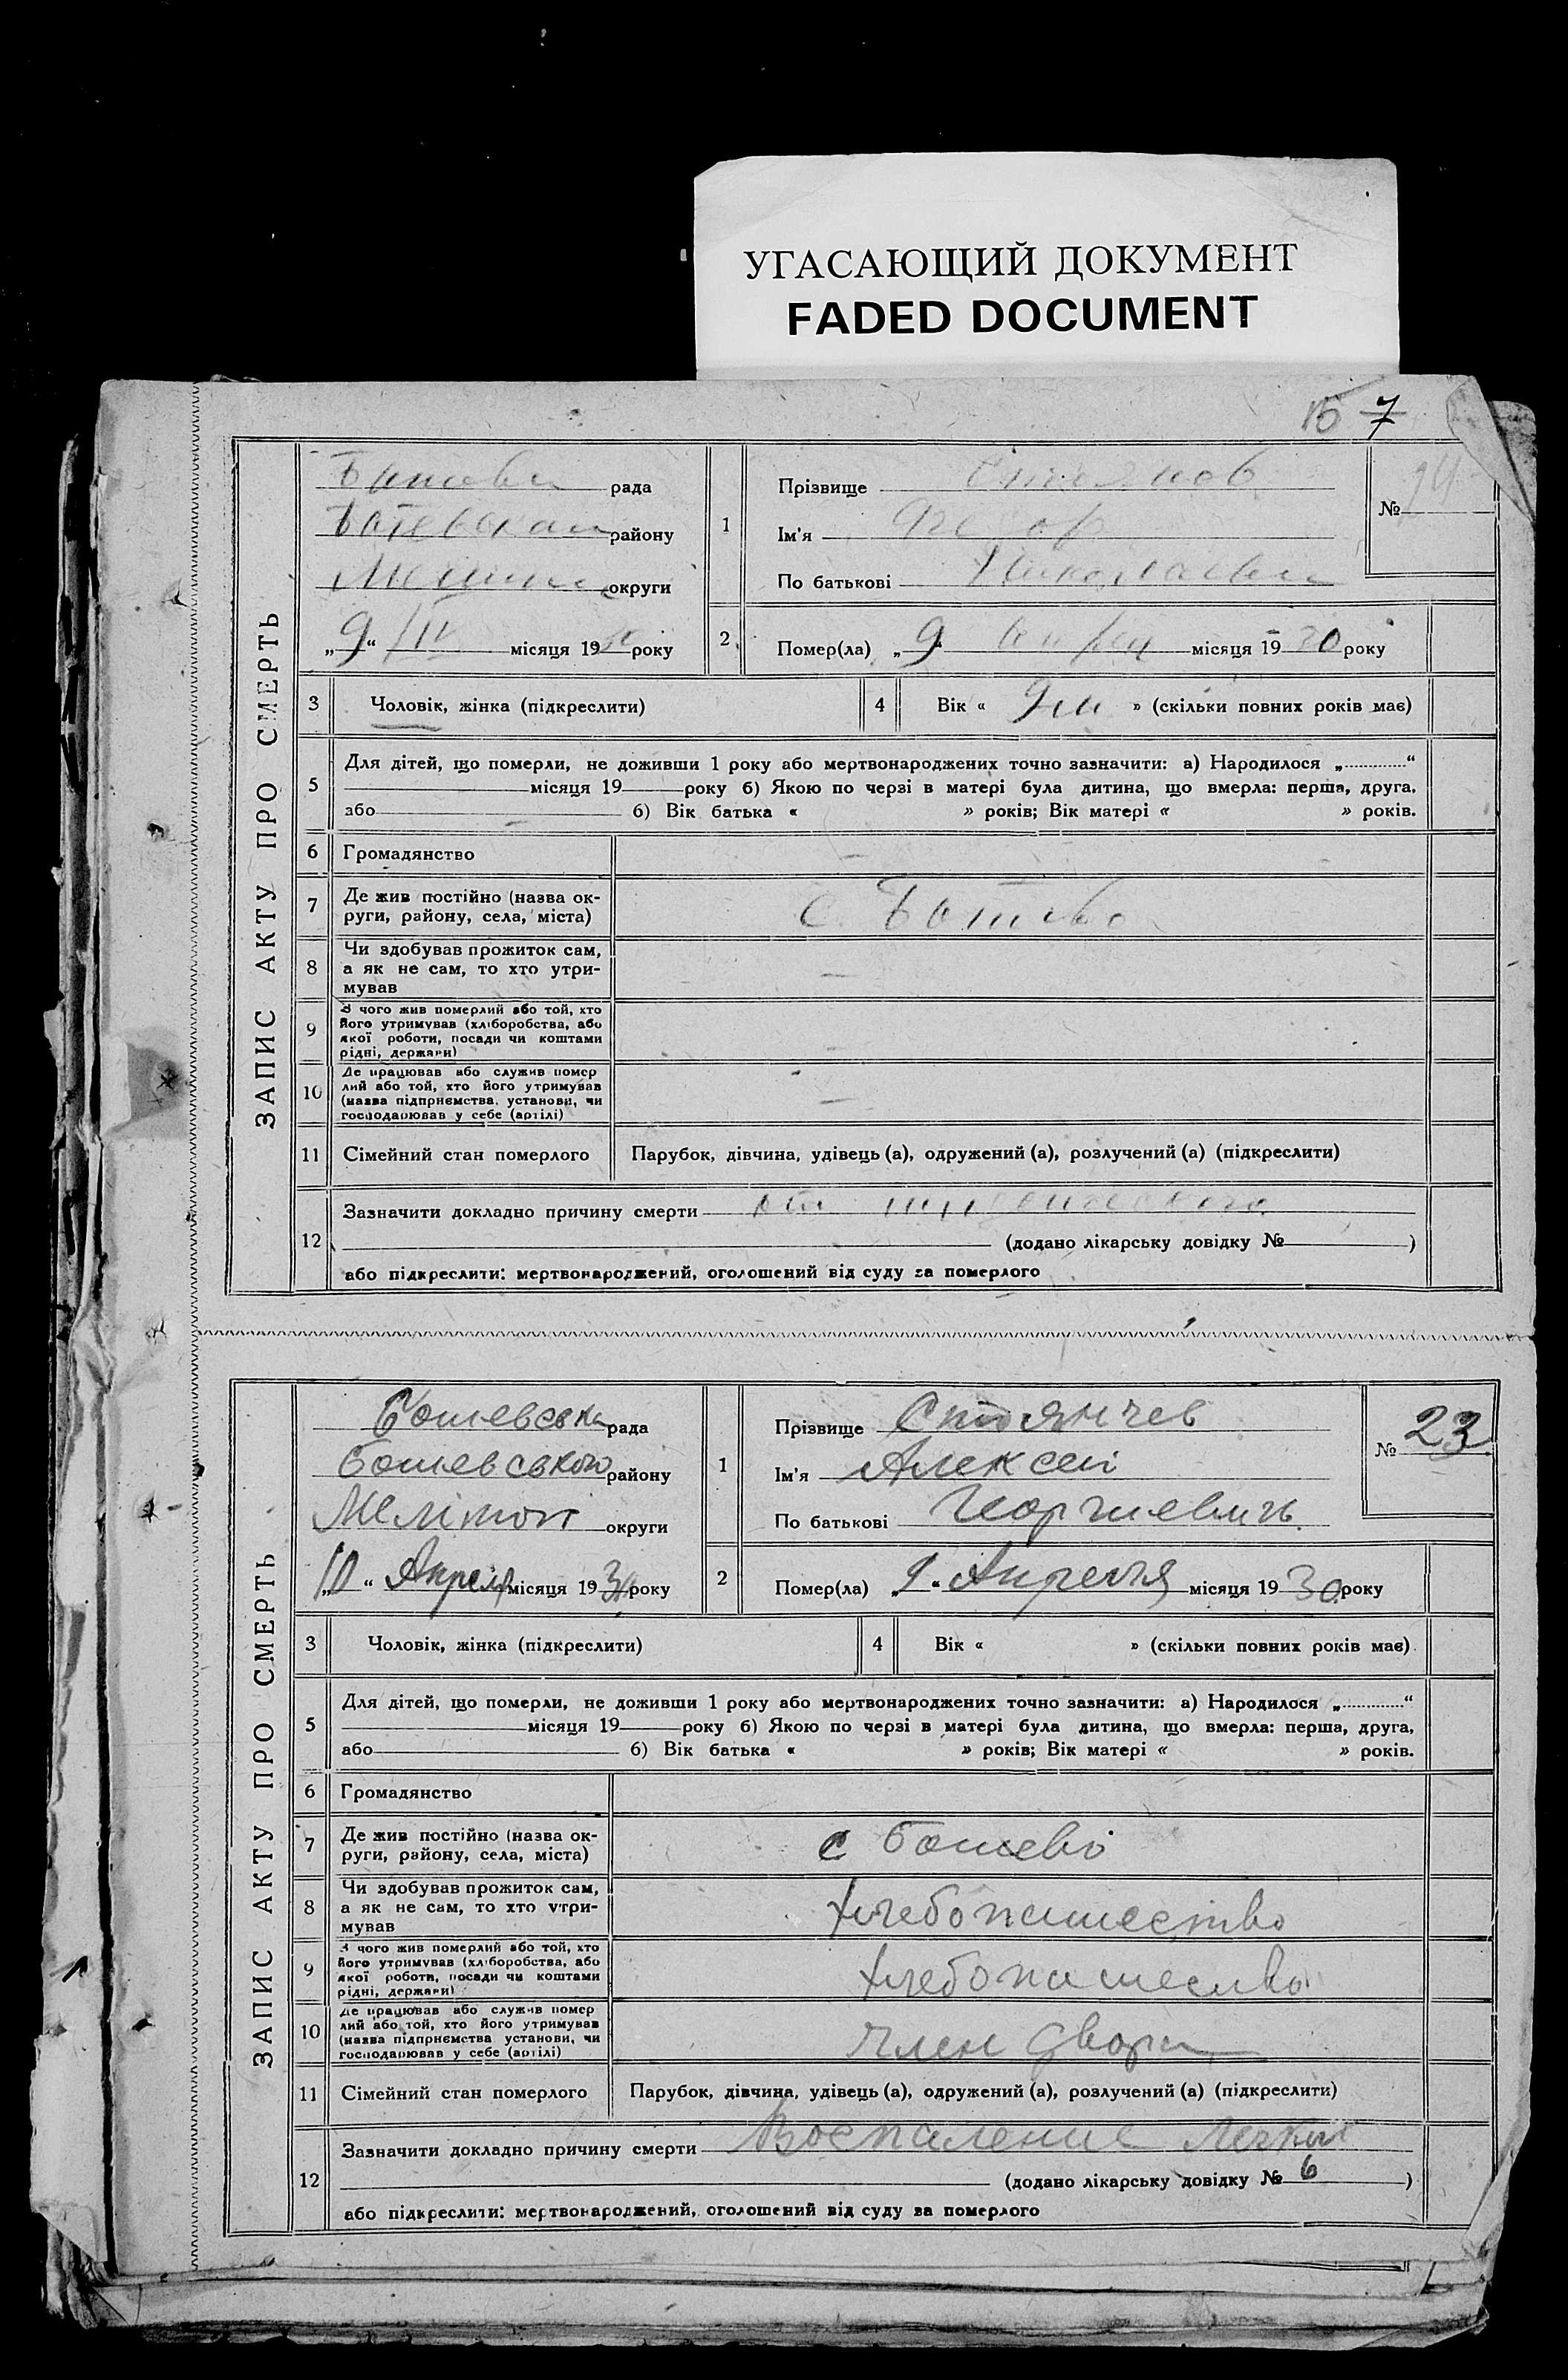 УГАСАЮЩИЙ ДОКУМЕНТ
FADED DOCUMENT
15 7
ЗАПИС АКТУ ПРО СМЕРТЬ
рада
району
округи
„9“ IV місяця 19 року
1
Прізвище Стоянов
Ім'я Федор
По батькові Николаевич
№
2
Помер(ла) „9“ місяця 1930 року
3 Чоловік, жінка (підкреслити)
4 Вік « » (скільки повних років має)
5
Для дітей, що померли, не доживши 1 року або мертвонароджених точно зазначити: а) Народилося „ “
місяця 19 року б) Якою по черзі в матері була дитина, що вмерла: перша, друга,
або б) Вік батька « » років; Вік матері « » років.
6 Громадянство
7 Де жив постійно (назва ок-
руги, району, села, міста)
с Ботиево
8
Чи здобував прожиток сам,
а як не сам, то хто утри-
мував
9
З чого жив померлий або той, хто
його утримував (хліборобства, або
якої роботи, посади чи коштами
рідні, держави)
10
Де працював або служив помер
лий або той, хто його утримував
(назва підприємства, установи, чи
господарював у себе (артілі)
11 Сімейний стан померлого Парубок, дівчина, удівець (а), одружений (а), розлучений (а) (підкреслити)
12
Зазначити докладно причину смерти
(додано лікарську довідку № )
або підкреслити: мертвонароджений, оголошений від суду за померлого
ЗАПИС АКТУ ПРО СМЕРТЬ
Ботиевська рада
Ботиевського району
Меліtоп округи
„10“ Апреля місяця 1930 року
1
Прізвище Стоянчев
Ім'я Алексей
По батькові Георгиевичь
№ 23
2
Помер(ла) „9“ Апреля місяця 1930 року
3 Чоловік, жінка (підкреслити)
4 Вік « » (скільки повних років має)
5
Для дітей, що померли, не доживши 1 року або мертвонароджених точно зазначити: а) Народилося „ “
місяця 19 року б) Якою по черзі в матері була дитина, що вмерла: перша, друга,
або б) Вік батька « » років; Вік матері « » років.
6 Громадянство
7 Де жив постійно (назва ок-
руги, району, села, міста)
с Ботиево
8
Чи здобував прожиток сам,
а як не сам, то хто утри-
мував
хлебопашество
9
З чого жив померлий або той, хто
його утримував (хліборобства, або
якої роботи, посади чи коштами
рідні, держави)
хлебопашество
10
Де працював або служив помер
лий або той, хто його утримував
(назва підприємства установи, чи
господарював у себе (артілі)
член двора
11 Сімейний стан померлого Парубок, дівчина, удівець (а), одружений (а), розлучений (а) (підкреслити)
12
Зазначити докладно причину смерти Воспаление Легких
(додано лікарську довідку № 6 )
або підкреслити: мертвонароджений, оголошений від суду за померлого